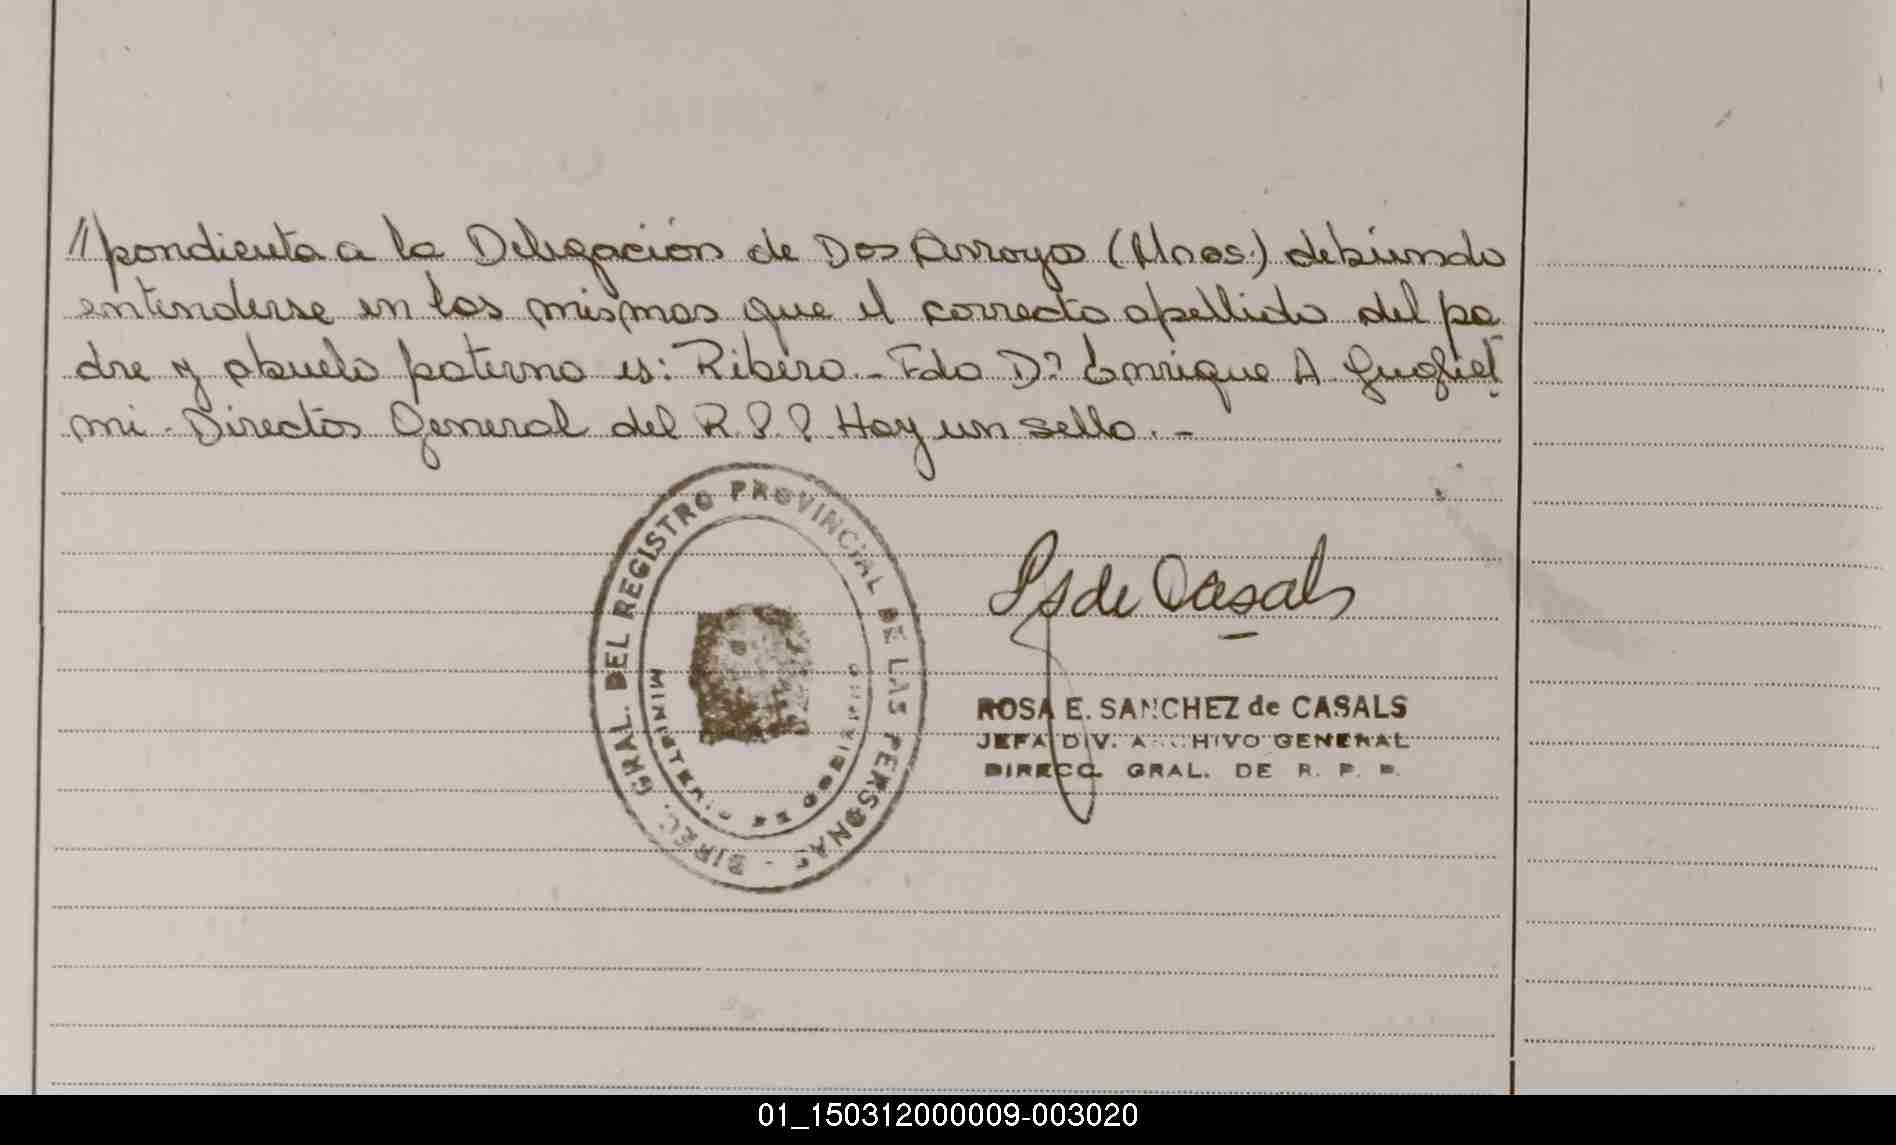 //pondiente a la Delegación de Dos Arroyos (Mnes.) debiendo
entenderse en los mismos que el correcto apellido del pa
dre y abuelo paterno es: Ribero.- Fdo Dº Enrique A. Gugliel
mi - Director General del R.P.P. Hay un sello. -
DIREC. GRAL. DEL REGISTRO PROVINCIAL DE LAS PERSONAS -
MINISTERIO DE GOBIERNO
RS de Casals
ROSA E. SANCHEZ de CASALS
JEFA DIV. ARCHIVO GENERAL
DIRECC. GRAL. DE R. P. P.
01_150312000009-003020